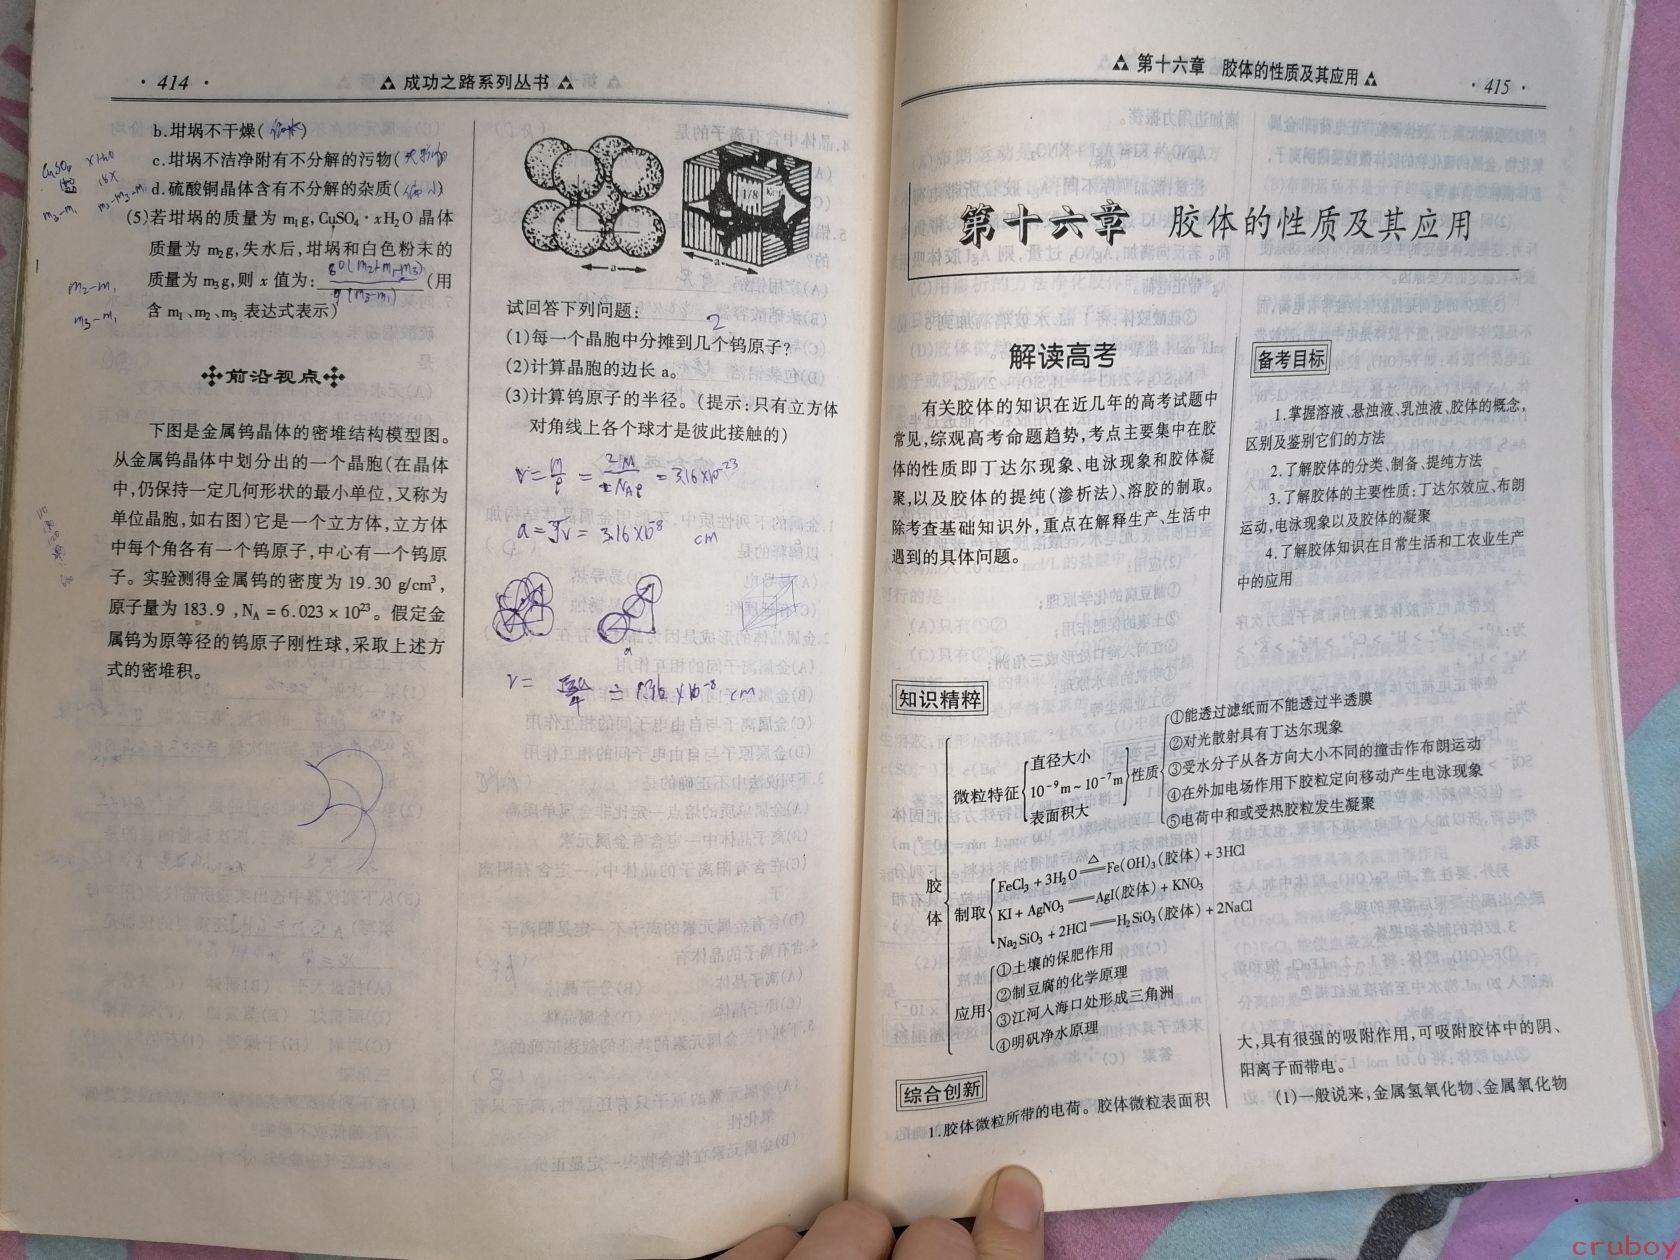 · 414 ·
成功之路系列丛书
b.坩埚不干燥(偏大)
c.坩埚不洁净附有不分解的污物(无影响)
d.硫酸铜晶体含有不分解的杂质(偏小)
(5)若坩埚的质量为 m₁g,CuSO₄·xH₂O 晶体
质量为 m₂g,失水后,坩埚和白色粉末的
质量为 m₃g,则 x 值为: 80(m₂+m₁-m₃) / 9(m₃-m₁) (用
含 m₁、m₂、m₃ 表达式表示)
CuSO₄ xH₂O
160 18x
m₃-m₁ m₂-m₃-m₁
m₂-m₁
m₃-m₁
前沿视点
下图是金属钨晶体的密堆结构模型图。
从金属钨晶体中划分出的一个晶胞(在晶体
中,仍保持一定几何形状的最小单位,又称为
单位晶胞,如右图)它是一个立方体,立方体
中每个角各有一个钨原子,中心有一个钨原
子。实验测得金属钨的密度为 19.30 g/cm³,
原子量为 183.9 ,N_A = 6.023 × 10²³。假定金
属钨为原等径的钨原子刚性球,采取上述方
式的密堆积。
1/8
a
a
试回答下列问题:
(1)每一个晶胞中分摊到几个钨原子? 2
(2)计算晶胞的边长 a。
(3)计算钨原子的半径。(提示:只有立方体
对角线上各个球才是彼此接触的)
v = m/ρ = 2M / N_Aρ = 3.16×10⁻²³
a = ³√v = 3.16×10⁻⁸ cm
a
r = √3a/4 = 1.36×10⁻⁸ cm
第十六章 胶体的性质及其应用
· 415 ·
第十六章 胶体的性质及其应用
解读高考
有关胶体的知识在近几年的高考试题中
常见,综观高考命题趋势,考点主要集中在胶
体的性质即丁达尔现象、电泳现象和胶体凝
聚,以及胶体的提纯(渗析法)、溶胶的制取。
除考查基础知识外,重点在解释生产、生活中
遇到的具体问题。
备考目标
1.掌握溶液、悬浊液、乳浊液、胶体的概念,
区别及鉴别它们的方法
2.了解胶体的分类、制备、提纯方法
3.了解胶体的主要性质:丁达尔效应、布朗
运动,电泳现象以及胶体的凝聚
4.了解胶体知识在日常生活和工农业生产
中的应用
知识精粹
胶体
微粒特征
直径大小
10⁻⁹m ~ 10⁻⁷m
表面积大
性质
①能透过滤纸而不能透过半透膜
②对光散射具有丁达尔现象
③受水分子从各方向大小不同的撞击作布朗运动
④在外加电场作用下胶粒定向移动产生电泳现象
⑤电荷中和或受热胶粒发生凝聚
制取
FeCl₃ + 3H₂O =△= Fe(OH)₃(胶体) + 3HCl
KI + AgNO₃ == AgI(胶体) + KNO₃
Na₂SiO₃ + 2HCl == H₂SiO₃(胶体) + 2NaCl
应用
①土壤的保肥作用
②制豆腐的化学原理
③江河入海口处形成三角洲
④明矾净水原理
综合创新
1.胶体微粒所带的电荷。胶体微粒表面积
大,具有很强的吸附作用,可吸附胶体中的阴、
阳离子而带电。
(1)一般说来,金属氢氧化物、金属氧化物
cruboy